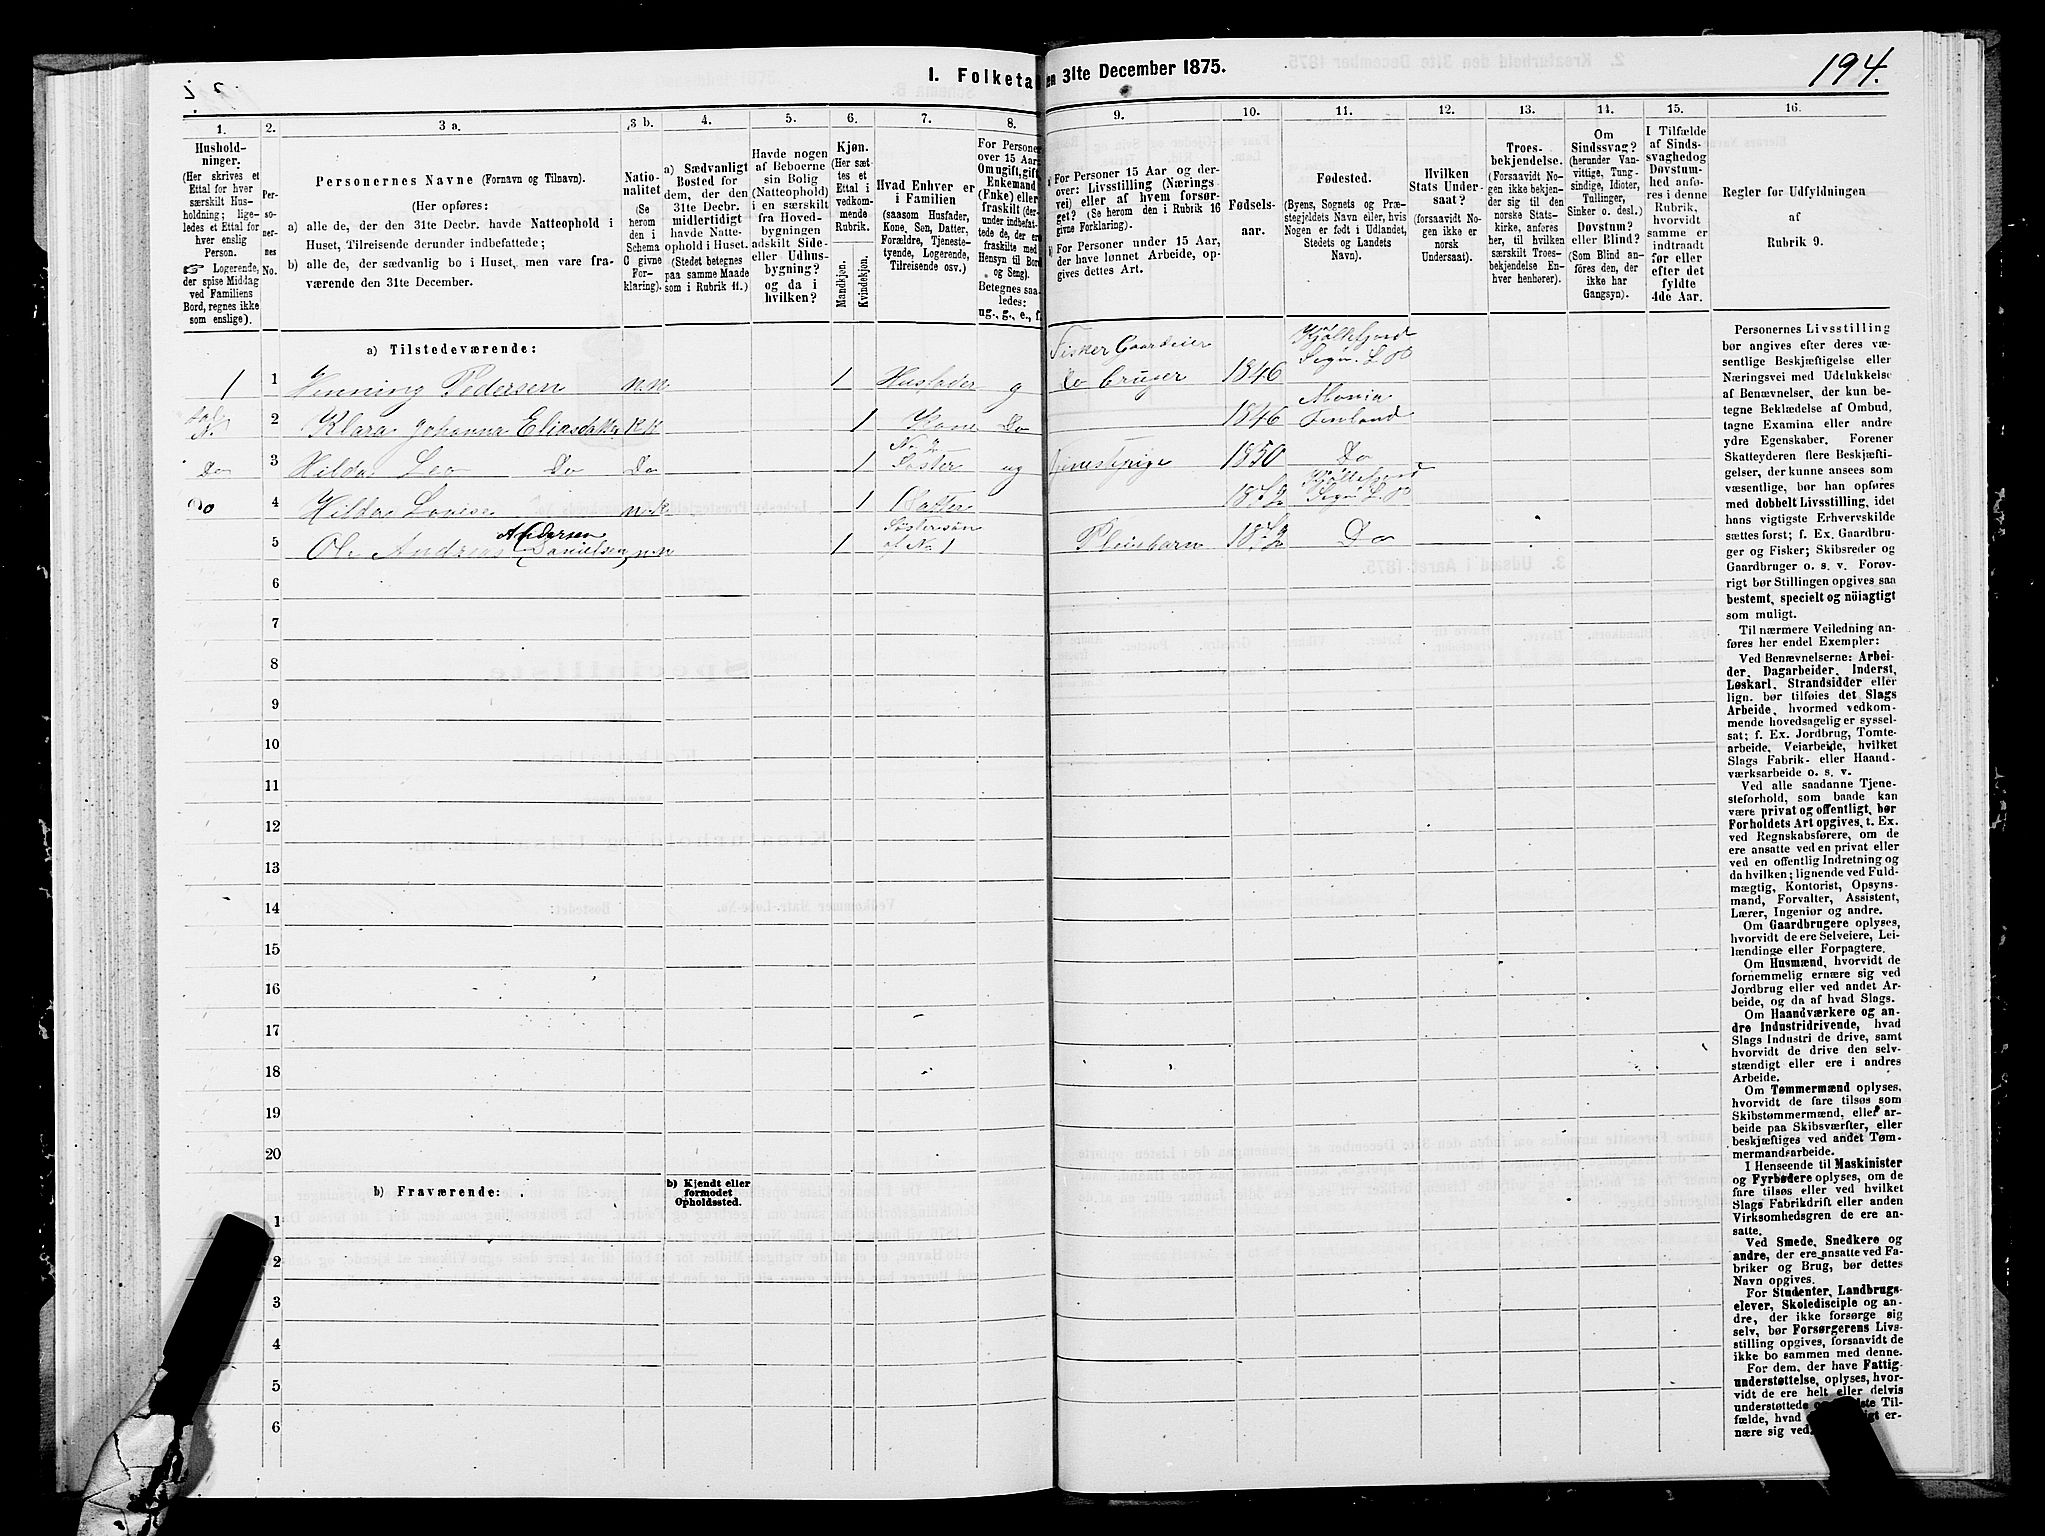 1. Folketæ
en 31te December 1875.
194.
1.
Hushold-
ninger.
(Her skrives et
Ettal for hver
særskilt Hus-
holdning; lige-
ledes et Ettal for
hver enslig
Person.
☞ Logerende,
der spise Middag
ved Familiens
Bord, regnes ikke
som enslige).
2.
Per-
so-
ner-
nes
No.
3 a.
Personernes Navne (Fornavn og Tilnavn).
(Her opføres:
a) alle de, der den 31te Decbr. havde Natteophold i
Huset, Tilreisende derunder indbefattede;
b) alle de, der sædvanlig bo i Huset, men vare fra-
værende den 31te December.
3 b.
Natio-
nalitet
(Se
herom
den i
Schema
C givne
For-
klaring).
4.
a) Sædvanligt
Bosted for
dem, der den
31te Decbr.
midlertidigt
havde Natte-
ophold i Huset.
(Stedet betegnes
paa samme Maade
som i Rubrik 11.)
5.
Havde nogen
af Beboerne
sin Bolig
(Natteophold)
31te Decbr.
i en særskilt
fra Hoved-
bygningen
adskilt Side-
eller Udhus-
bygning?
og da i
hvilken?
6.
Kjøn.
(Her sæt-
tes et
Ettal i
vedkom-
mende
Rubrik.
Mandkjøn.
Kvindekjøn.
7.
Hvad Enhver er
i Familien
(saasom Husfader,
Kone, Søn, Datter,
Forældre, Tjeneste-
tyende, Logerende,
Tilreisende osv.)
8.
For Personer
over 15 Aar:
Om ugift, gift,
Enkemand
(Enke) eller
fraskilt (der-
under indbefat-
tede de, der er
fraskilte med
Hensyn til Bord
og Seng).
Betegnes saa-
ledes:
ug., g., e., f.
9.
Personer 15 Aar og der-
over: Livsstilling (Nærings-
vei) eller af hvem forsør-
get? (Se herom den i Rubrik 16
givne Forklaring).
For Personer under 15 Aar,
der have lønnet Arbeide, op-
gives dettes Art.
10.
Fødsels-
aar.
11.
Fødested.
(Byens, Sognets og Præ-
stegjeldets Navn eller, hvis
Nogen er født i Udlandet,
Stedets og Landets
Navn).
12.
Hvilken
Stats Under-
saat?
(forsaavidt No-
gen ikke er
norsk
Undersaat).
13.
Troes-
bekjendelse.
(Forsaavidt No-
gen ikke bekjen-
der sig til den
norske Stats-
kirke, anføres
her, til hvilken
særskilt Troes-
bekjendelse En-
hver henhører).
14.
Om
Sindssvag?
(herunder Van-
vittige, Tung-
sindige, Idioter,
Tullinger,
Sinker o. desl.)
Døvstum?
eller Blind?
(Som Blind an-
føres den, der
ikke har
Gangsyn).
15.
I Tilfælde
af Sinds-
svaghed og
Døvstum-
hed anfø-
res i denne
Rubrik,
hvorvidt
samme er
indtraadt
før eller
efter det
fyldte
4de Aar.
16.
Regler for Udfyldningen
af
Rubrik 9.
a) Tilstedeværende:
1 1 Henning Pedersen n.n 1 Husfader g Fisker Gaardeier Do bruger 1846
2 Klara Johanna Eliasdatter 1 Kone Do 1846 Finland
Do 3 Hilda Do Do 1 Søster ug Tjenestepige 1850 Do
Do 4 Hilda Lovise 1 Datter
5 Ole Andreas Andersen (Danielsen) n.n 1 Søstersøn af No 1 Pleiebarn Do
6
7
8
9
10
11
12
13
14
15
16
17
18
19
20
b) Fraværende:
b) Kjendt eller
formodet
Opholdssted.
1
2
3
4
5
6
Personernes Livsstilling
bør angives efter deres væ-
sentlige Beskjæftigelse eller
Næringsvei med Udelukkelse
af Benævnelser, der kun be-
tegne Beklædelse af Ombud,
tagne Examina eller andre
ydre Egenskaber. Forener
Skatteyderen flere Beskjæfti-
gelser, der kunne ansees som
væsentlige, bør han opføres
med dobbelt Livsstilling, idet
hans vigtigste Erhvervskilde
sættes først; f. Ex. Gaardbru-
ger og Fisker; Skibsreder og
Gaardbruger o. s. v. Forøv-
rigt bør Stillingen opgives saa
bestemt, specielt og nöiagtigt
som muligt.
Til nærmere Veiledning an-
føres her endel Exempler:
Ved Benævnelserne: Arbei-
der, Dagarbeider, Inderst,
Løskarl, Strandsidder eller
lign. bør tilføies det Slags
Arbeide, hvormed vedkom-
mende hovedsagelig er syssel-
sat; f. Ex. Jordbrug, Tomte-
arbeide, Veiarbeide, hvilket
Slags Fabrik- eller Haand-
værksarbeide o. s. v.
Ved alle saadanne Tjene-
steforhold, som baade kan
være privat og offentligt, bør
Forholdets Art opgives, t. Ex.
ved Regnskabsførere, om de
ere ansatte ved en privat eller
ved en offentlig Indretning og
da hvilken; lignende ved Fuld-
mægtig, Kontorist, Opsyns-
mand, Forvalter, Assistent,
Lærer, Ingeniør og andre.
Om Gaardbrugere oplyses,
hvorvidt de ere Selveiere, Lei-
lændinge eller Forpagtere.
Om Husmænd, hvorvidt de
fornemmelig ernære sig ved
Jordbrug eller ved andet Ar-
beide, og da af hvad Slags.
Om Haandværkere og an-
dre Industridrivende, hvad
Slags Industri de drive, samt
hvorvidt de drive den selv-
stændigt eller ere i andres
Arbeide.
Om Tømmermænd oplyses,
hvorvidt de fare tilsøs som
Skibstømmermænd, eller ar-
beide paa Skibsværfter, eller
beskjæftiges ved andet Tøm-
mermandsarbeide.
I Henseende til Maskinister
og Fyrbødere oplyses, om de
fare tilsøs eller ved hvilket
Slags Fabrikdrift eller anden
Virksomhedsgren de ere an-
satte.
Ved Smede, Snedkere og
andre, der ere ansatte ved Fa-
briker og Brug, bør dettes
Navn opgives.
For Studenter, Landbrugs-
elever, Skoledisciple og an-
dre, der ikke forsørge sig
selv, bør Forsørgerens Livs-
stilling opgives, forsaavidt de
ikke bo sammen med denne.
For dem, der have Fattig-
understøttelse, oplyses, hvor-
vidt de ere helt eller delvis
understøttede
fælde, hvad
nære sig ved.